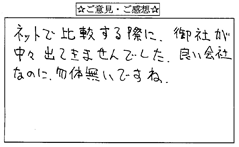 ☆ご意見・ご感想☆
ネットで比較する際に、御社が
中々出てきませんでした。良い会社
なのに、勿体無いですね。